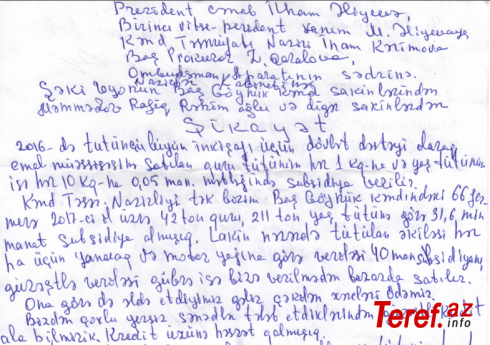 Prezident cnab İlham Əliyevə,
Birinci vitse-prezident xanım M. Əliyevaya
Kənd Təsərrüfatı Naziri İnam Kərimova
Baş Prokuror Z. Qaralova,
Ombudsman Aparatının sədrinə.
Nazirlər Kabinetinə
Şəki rayonun Baş Göynük kənd sakinlərindən
Məmmədov Rafiq Rəhim oğlu və digər sakinlərdən
Şikayət
2016-də tütünçülüyün inkişafı üçün dövlət dəstəyi olaraq
emal müəssisəsinə satılan quru tütünün hər 1 kq-nə və yaş tütünün
isə hər 10 kq-nə 0,05 man. məbləğində subsidiya verilir.
Kənd Təsər. Nazirliyi tək bizim Baş Göynük kəndindəki 66 fer
merə 2017-ci il üzrə 42 ton quru, 211 ton yaş tütünə görə 31,6 min
manat subsidiya almışıq. Lakin nəzərdə tutulan əkilən hər
ha üçün yanacaq və motor yağına görə veriləsi 40 man subsidiyanı,
güzəştlə veriləsi gübrə isə bizə verilmədən bazarda satılır.
Ona görə də əldə etdiyimiz gəlir çəkilən xərcləri ödəmir.
Bizdən çoxlu yersiz sənədlər tələb etdiklərindən kredit
ala bilmirik. Kredit üzünə həsrət qalmışıq.
Teref.az
info